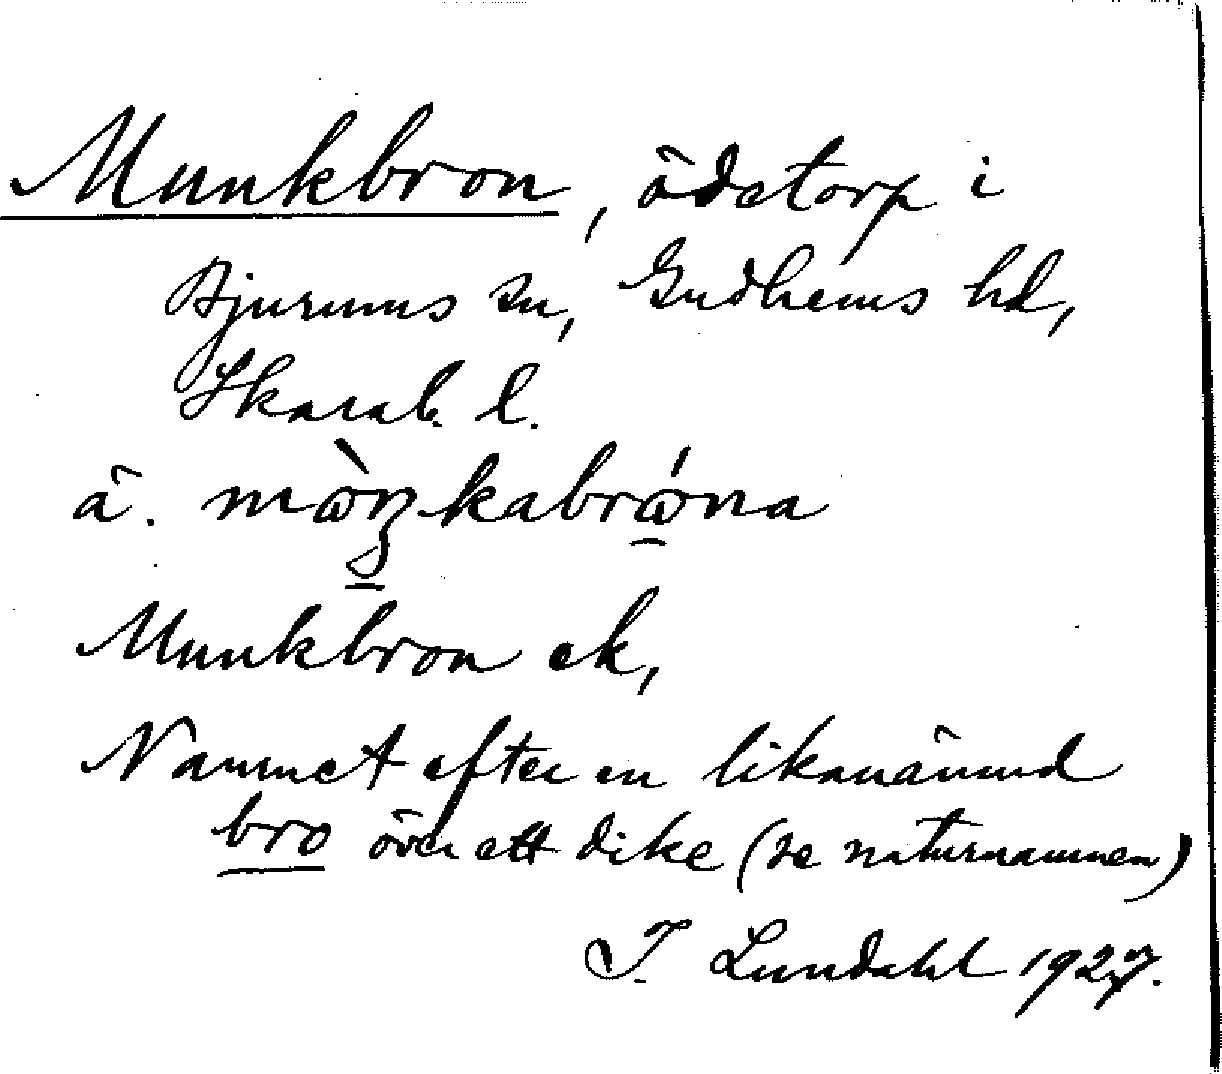 Munkbron, ödetorp i
Bjurums sn, Gudhems hd,
Skarab. l.
ä. mⱷ̀ŋkabrⱷ́na
Munkbron ek,
Namnet efter en likanämnd
bro över ett dike (se naturnamnen)
I. Lundahl 1927.